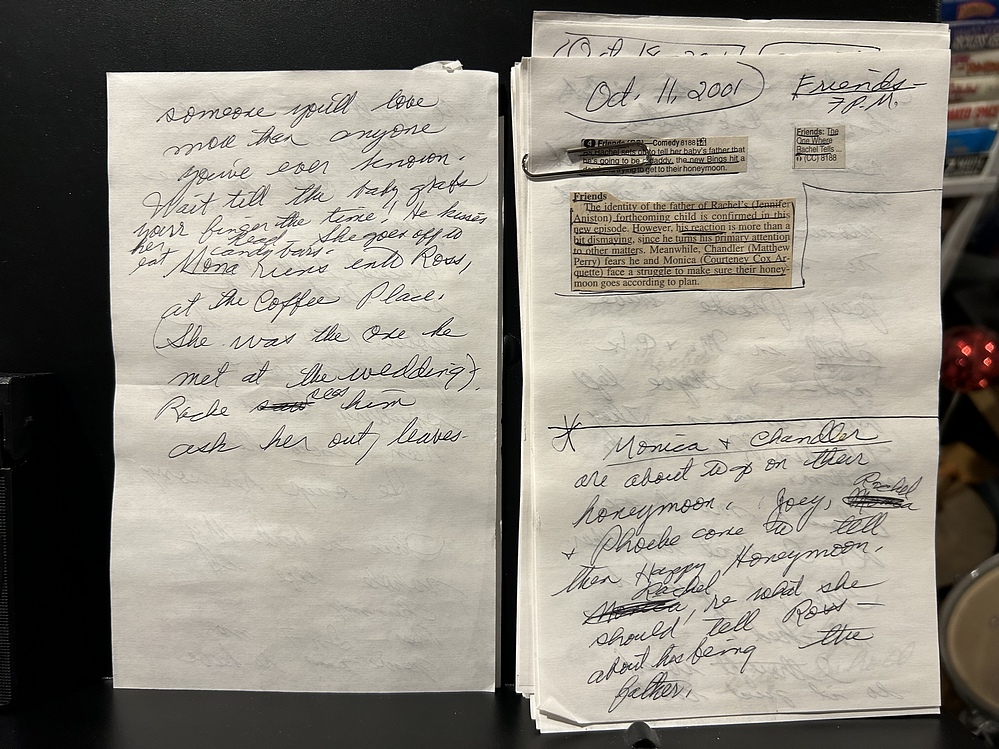 someone you'll love
more then anyone
you've ever known.
Wait till the baby grabs
your finger the time! He kisses
her head. She goes off to
eat candy bars.
Mona runs into Ross,
at the Coffee Place.
(She was the one he
met at the wedding).
Rache sees him
ask her out, leaves-
Oct. 11, 2001
Friends-
7 P.M.
4 Friends (CC) —Comedy 8188
Rachel sets out to tell her baby's father that
he's going to be a daddy, the new Bings hit a
trying to get to their honeymoon.
Friends: The
One Where
Rachel Tells ...
(CC) 8188
Friends
The identity of the father of Rachel's (Jennifer
Aniston) forthcoming child is confirmed in this
new episode. However, his reaction is more than a
bit dismaying, since he turns his primary attention
to other matters. Meanwhile, Chandler (Matthew
Perry) fears he and Monica (Courteney Cox Ar-
quette) face a struggle to make sure their honey-
moon goes according to plan.
Monica + Chandler
are about to go on their
honeymoon. Joey, Rachel
+ Phoebe come to tell
then Happy Honeymoon.
Rachel, re what she
should tell Ross—
about his being the
father.